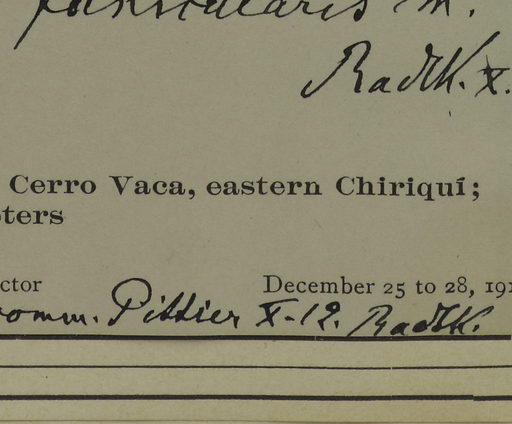 panicularis m.
Radlk. X.
Cerro Vaca, eastern Chiriquí;
ters
ctor December 25 to 28, 191
comm. Pittier X-12. Radlk.